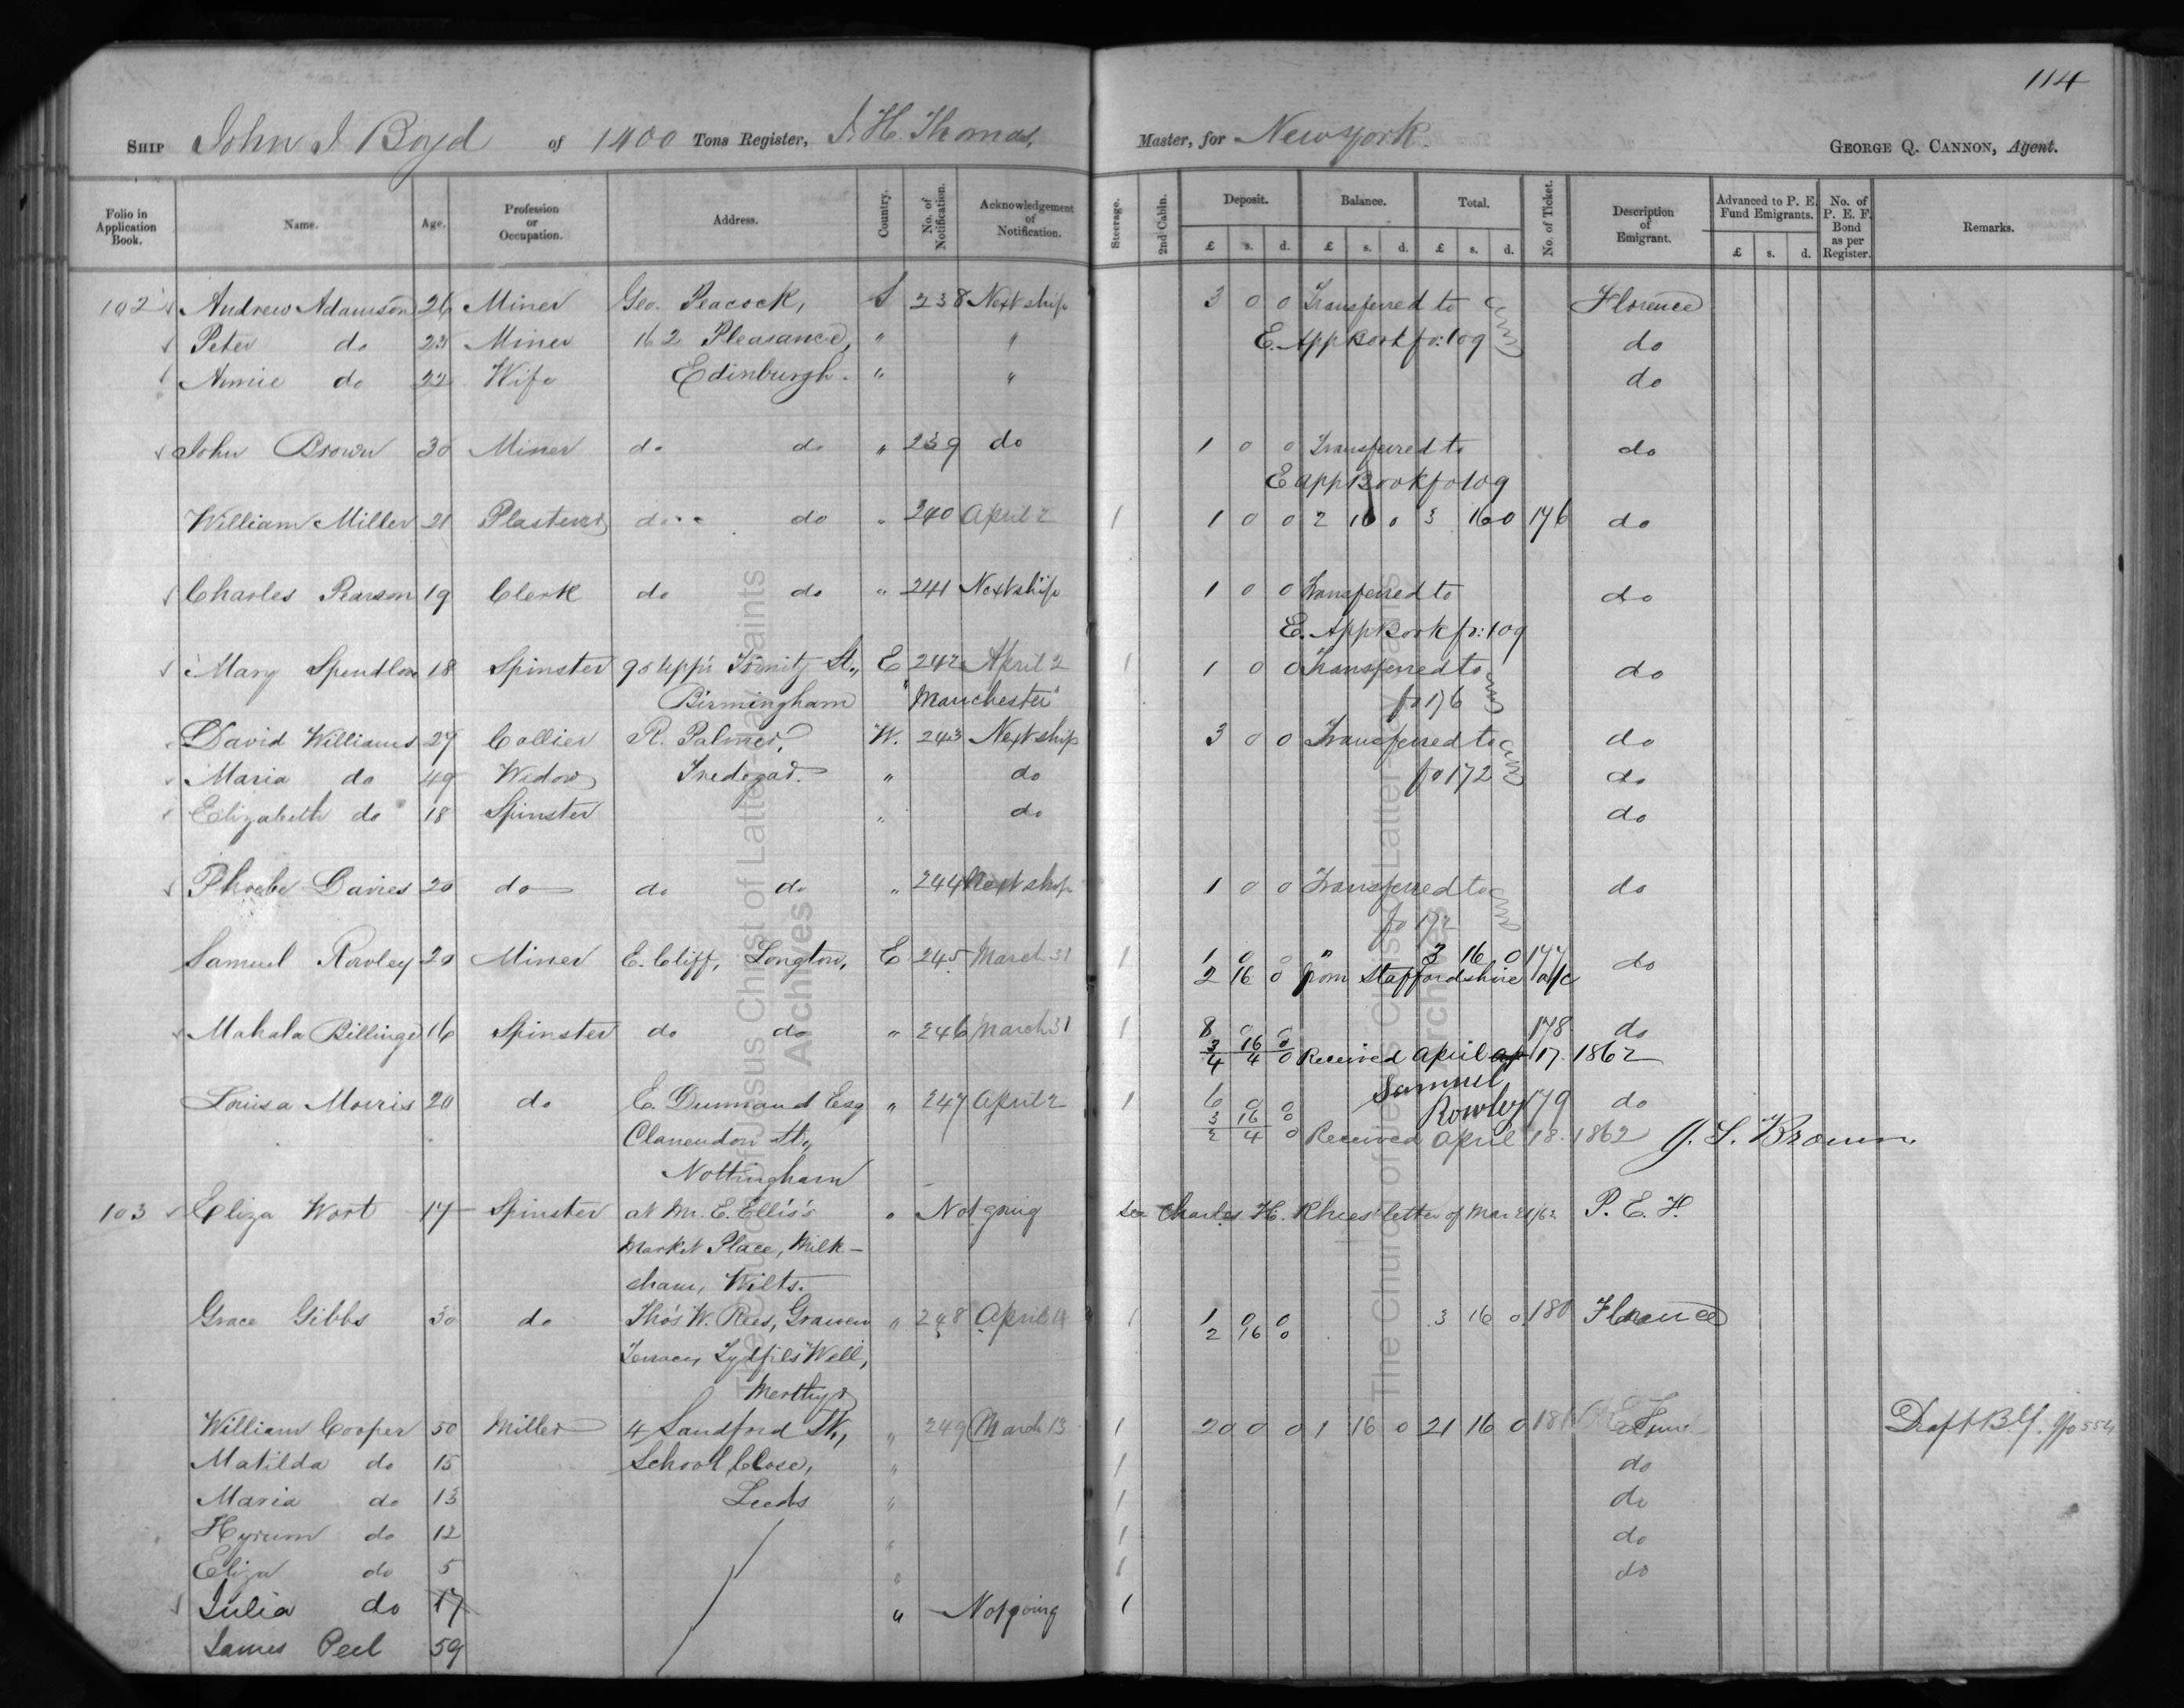 114
SHIP John J Boyd of 1400 Tons Register, J. H. Thomas, Master, for New York. GEORGE Q. CANNON, Agent.
Folio in Application Book. Name. Age. Profession or Occupation. Address. Country. No. of Notification. Acknowledgement of Notification. Steerage. 2nd Cabin. Deposit. Balance. Total. No. of Ticket. Description of Emigrant. Advanced to P. E. Fund Emigrants. No. of P. E. F. Bond as per Register. Remarks.
£ s. d. £ s. d. £ s. d. £ s. d.
102 Andrew Adamson 26 Miner Geo. Peacock, S 238 Next ship 3 0 0 Transferred to Florence
Peter do 23 Miner 162 Pleasance, " " E. App Book fo: 109 do
Annie do 22 Wife Edinburgh. " " do
John Brown 30 Miner do do " 239 do 1 0 0 Transferred to do
E app Book fo 109
William Miller 21 Plasterer do do " 240 April 2 1 1 0 0 2 16 0 3 16 0 176 do
Charles Pearson 19 Clerk do do " 241 Next ship 1 0 0 Transferred to do
E. App Book fo: 109
Mary Spendlove 18 Spinster 90 Upp'r Trinity St., E 242 April 2 1 1 0 0 Transferred to do
Birmingham "Manchester" fo 176
David Williams 27 Collier R. Palmer, W. 243 Next ship 3 0 0 Transferred to do
Maria do 49 Widow Tredegar. " do fo 172 do
Elizabeth do 18 Spinster " do do
Phoebe Davies 20 do do do " 244 Next ship 1 0 0 Transferred to do
fo 172
Samuel Rowley 20 Miner E. Cliff, Longton, E 245 March 31 1 1 0 0 " 3 16 0 177 do
2 16 0 from Staffordshire a/c
Mahala Billinge 16 Spinster do do " 246 March 31 1 8 0 0 178 do
3 16 0
4 4 0 Received April 17. 1862
Samuel Rowley
Louisa Morris 20 do E. Dunnand Esq " 247 April 2 1 6 0 0 179 do
3 16 0
Clarendon St., 2 4 0 Received April 18. 1862 J. S. Brown.
Nottingham
103 Eliza Wort 17 Spinster at Mr. E. Ellis's " Not going See Charles H. Rhees' letter of Mar P. E. F.
Market Place, Milk-
sham, Wilts.
Grace Gibbs 30 do Thos W. Rees, Grawen " 248 April 1 1 0 0 3 16 0 180 Florence
2 16 0
Terrace, Tydfils Well,
Merthyr
William Cooper 50 Miller 4 Sandford St., " 249 March 13 1 20 0 0 1 16 0 21 16 0 181 Fund Draft B.
Matilda do 15 School Close, " 1 do
Maria do 13 Leeds " 1 do
Hyrum do 12 " 1 do
Eliza do 5 " 1 do
Julia do 17 " Not going 1
James Peel 59
The Church of Jesus Christ of Latter-day Saints
Archives
The Church of Jesus Christ of Latter-day Saints
Archives